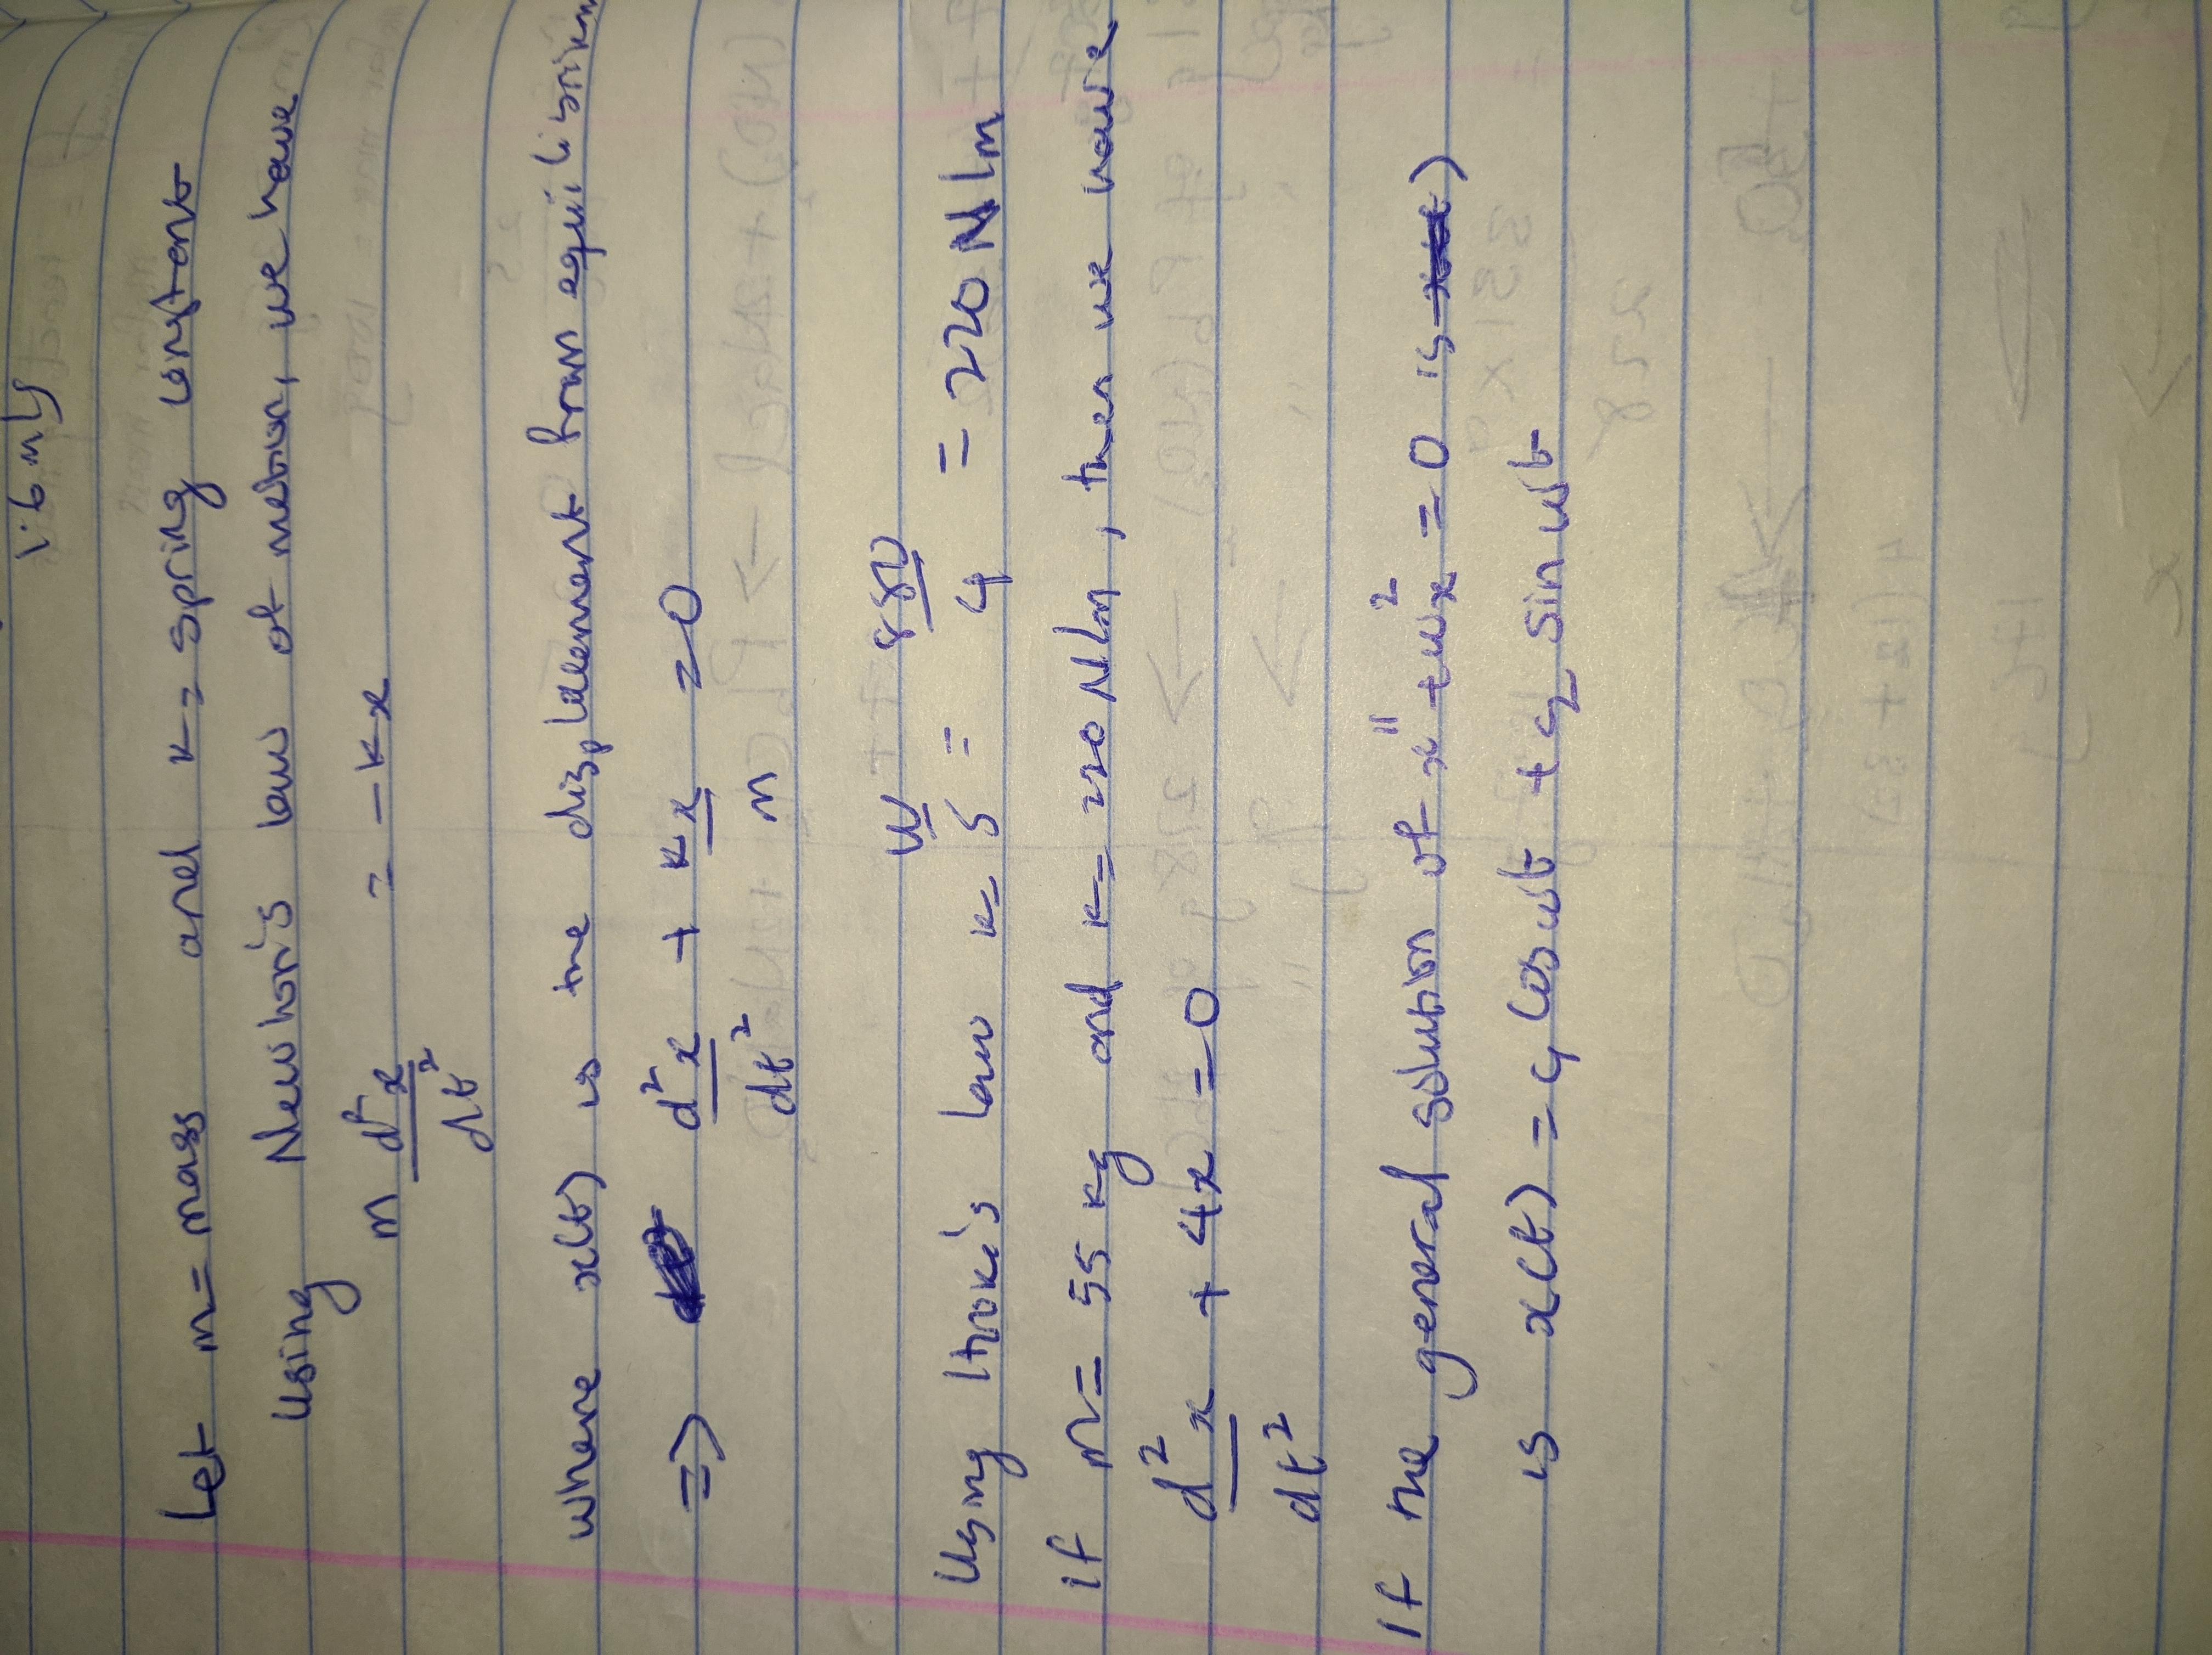 Let m = mass and k = spring constant
Using Newton's law of motion, we have
m d²x/dt² = -kx
where x(t) is the displacement from equilibrium
=> d²x/dt² + kx/m = 0
Using Hook's law k = W/s = 880/4 = 220 N/m
If m = 55 kg and k = 220 N/m, then we have
d²x/dt² + 4x = 0
If the general solution of x'' + w²x = 0 is
is x(t) = c₁ cos wt + c₂ sin wt